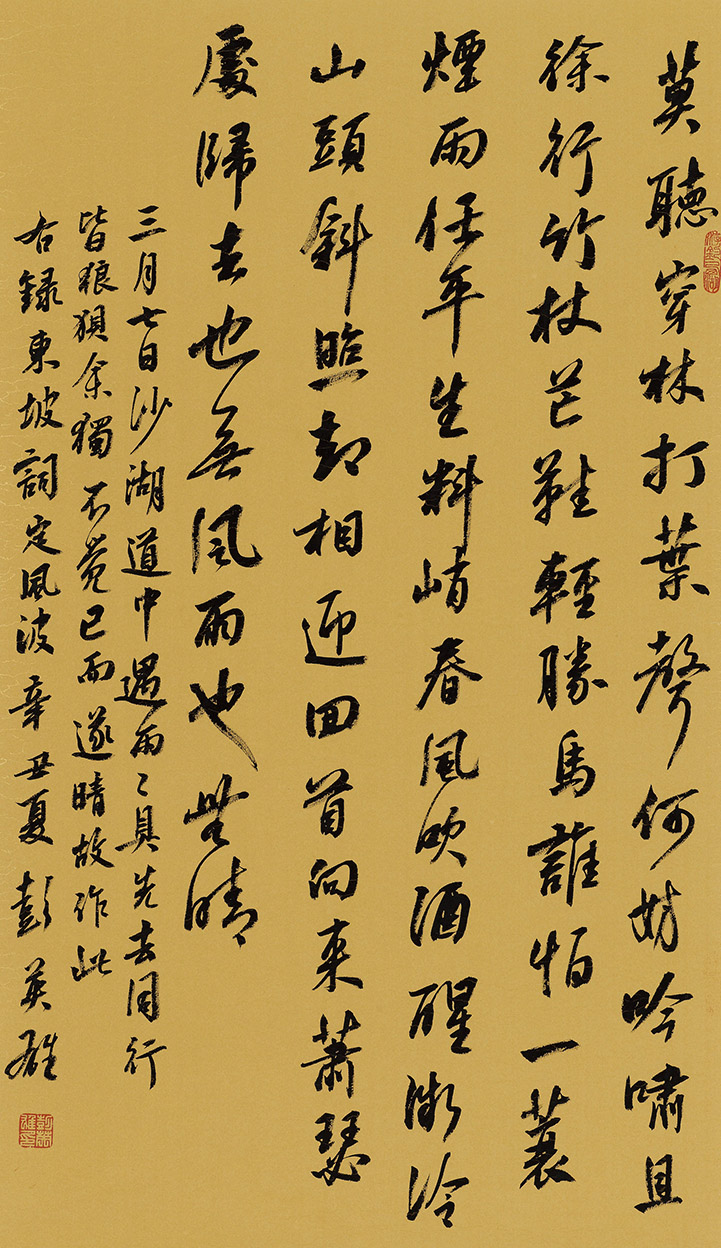 莫聽穿林打葉聲何妨吟嘯且
徐行竹杖芒鞋輕勝馬誰怕一蓑
煙雨任平生料峭春風吹酒醒微冷
山頭斜照却相迎回首向來蕭瑟
處歸去也無風雨也無晴
三月七日沙湖道中遇雨〻具先去同行
皆狼狽余獨不覺已而遂晴故作此
右錄東坡詞定風波辛丑夏彭英雄
彭英雄印